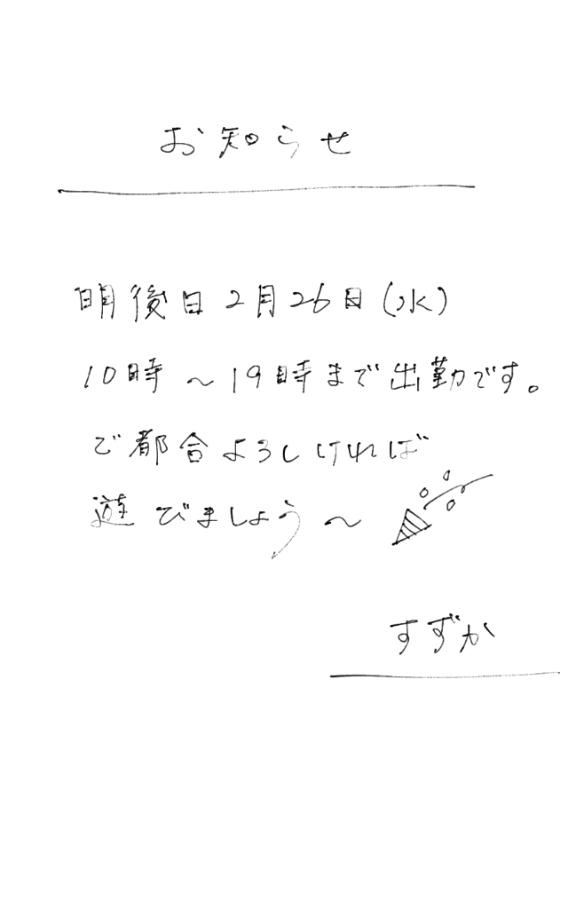 お知らせ
明後日2月26日(水)
10時～19時まで出勤です。
ご都合よろしければ
遊びましょう～
すずか